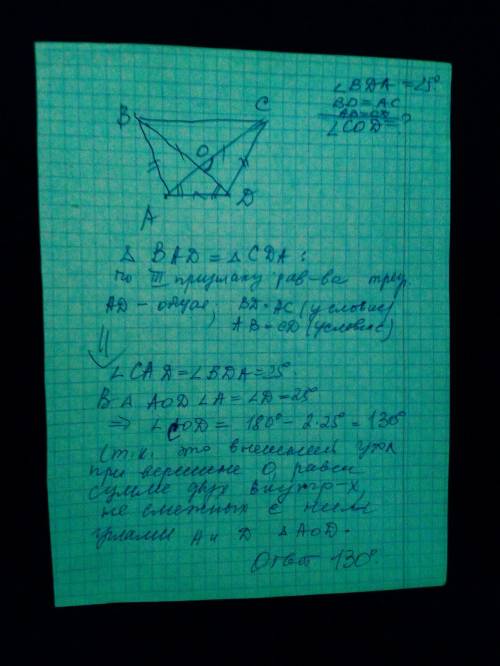 ∠BDA = 25°
BD = AC
AB = CD
∠COD = ?
B
C
O
A
D
△ BAD = △ CDA :
по III признаку рав-ва треу.
AD - общая, BD = AC (условие)
AB = CD (условие)
⇓
∠CAD = ∠BDA = 25°.
В △ AOD ∠A = ∠D = 25°
⇒ ∠COD = 180° - 2·25° = 130°
(т.к. это внешний угол
при вершине O, равен
сумме двух внутр-х,
не смежных с ним
углами A и D △ AOD.
Ответ 130°.